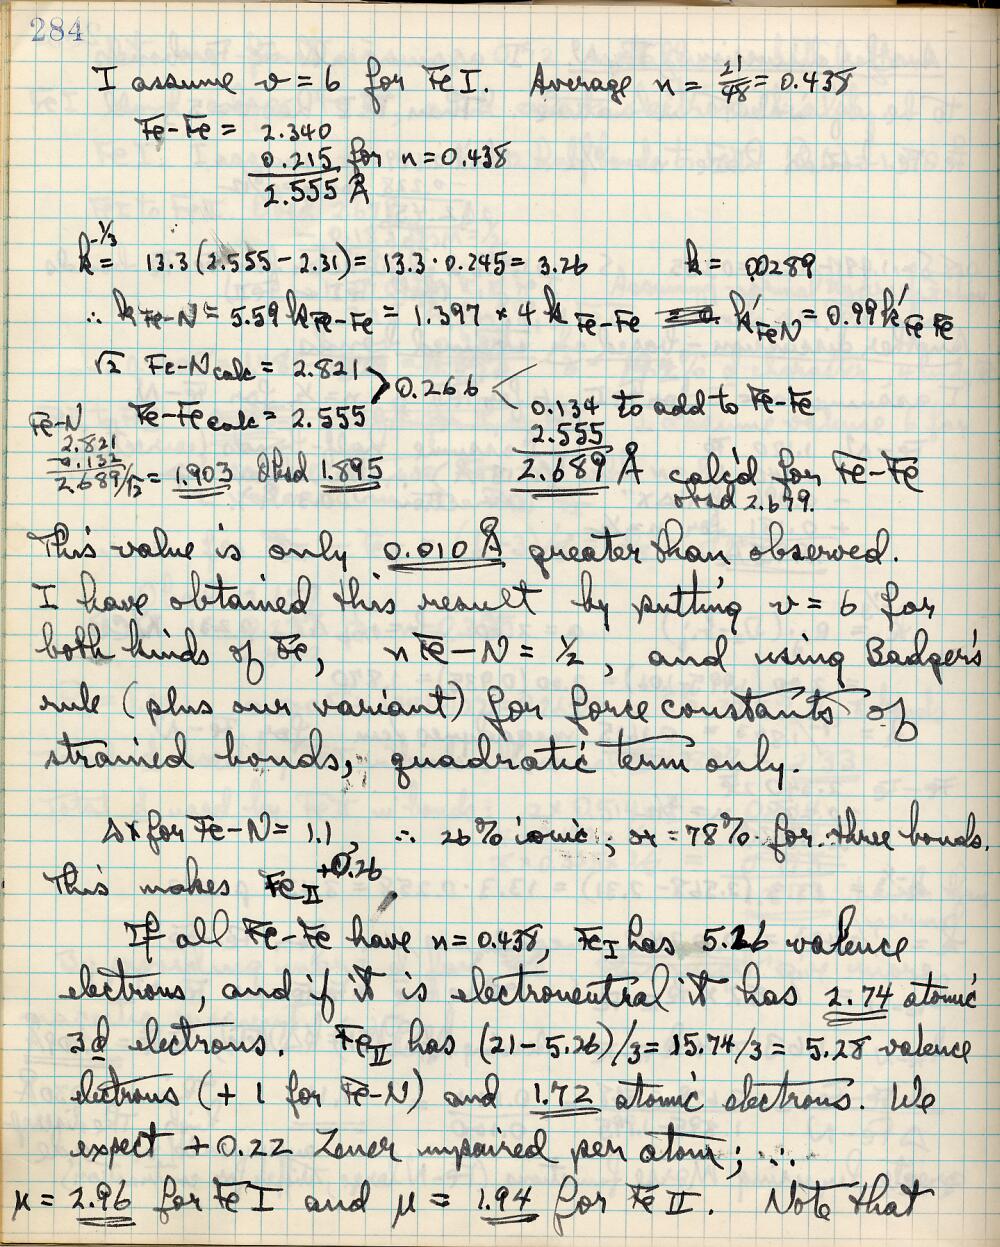 284
I assume v = 6 for Fe I. Average n = 21/48 = 0.438
Fe-Fe = 2.340
0.215 for n = 0.438
2.555 Å
k^-1/3 = 13.3 (2.555 - 2.31) = 13.3 · 0.245 = 3.26   k = .00289
∴ k Fe-N = 5.59 k Fe-Fe = 1.397 × 4 k Fe-Fe   k'FeN = 0.99 k'FeFe
√2 Fe-N calc = 2.821
> 0.266 <
Fe-Fe calc = 2.555
0.134 to add to Fe-Fe
2.555
2.689 Å calc'd for Fe-Fe
obsd 2.679.
Fe-N
2.821
-0.132
2.689/√2 = 1.903 Obsd 1.895
This value is only 0.010 Å greater than observed.
I have obtained this result by putting v = 6 for
both kinds of Fe, n Fe-N = ½, and using Badger's
rule (plus our variant) for force constants of
strained bonds, quadratic term only.
Δx for Fe-N = 1.1, ∴ 26% ionic; or = 78% for three bonds.
This makes Fe II +0.26
If all Fe-Fe have n = 0.438, Fe I has 5.26 valence
electrons, and if it is electroneutral it has 2.74 atomic
3d electrons. Fe II has (21 - 5.26)/3 = 15.74/3 = 5.28 valence
electrons (+ 1 for Fe-N) and 1.72 atomic electrons. We
expect + 0.22 Zener unpaired per atom; ∴
μ = 2.96 for Fe I and μ = 1.94 for Fe II. Note that